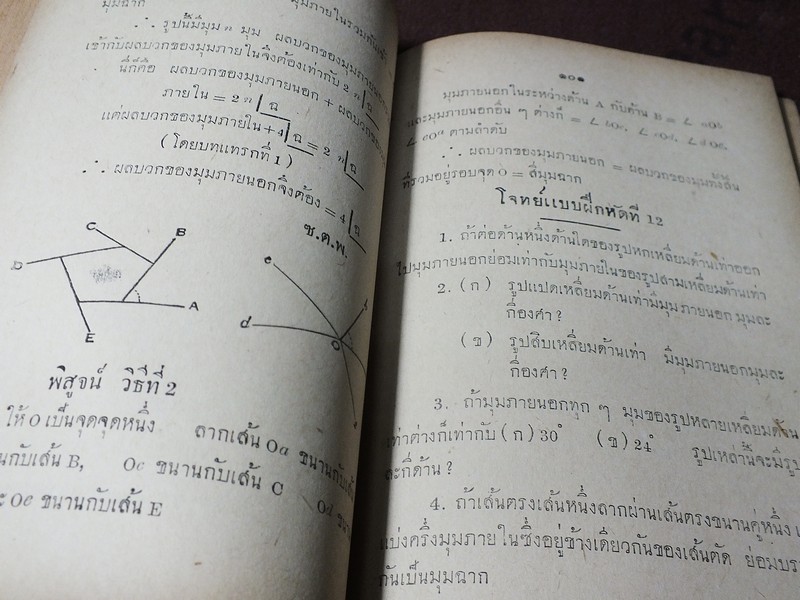 มุมฉาก
มุมภายในรวมกัน
∴ รูปนี้มีมุม n มุม ผลบวกของมุมภายนอก
เข้ากับผลบวกของมุมภายในจึงต้องเท่ากับ 2 n ฉ
นี่ก็คือ ผลบวกของมุมภายนอก + ผลบวกของ
ภายใน = 2 n ฉ
แต่ผลบวกของมุมภายใน + 4 ฉ = 2 n ฉ
(โดยบทแทรกที่ 1)
∴ ผลบวกของมุมภายนอกจึงต้อง = 4 ฉ
ซ.ต.พ.
C
B
D
A
E
e
f
d
O
พิสูจน์ วิธีที่ 2
ให้ O เป็นจุดจุดหนึ่ง ลากเส้น Oa ขนานกับเส้น
นกับเส้น B, Oc ขนานกับเส้น C Od ขนา
ะ Oe ขนานกับเส้น E
๑๐๑
มุมภายนอกในระหว่างด้าน A กับด้าน B = ∠ aOb
และมุมภายนอกอื่น ๆ ต่างก็ = ∠ bOc, ∠ cOd, ∠ dOe,
∠ eOa ตามลำดับ
∴ ผลบวกของมุมภายนอก = ผลบวกของมุมทั้งสิ้น
ที่รวมอยู่รอบจุด O = สี่มุมฉาก
โจทย์แบบฝึกหัดที่ 12
1. ถ้าต่อด้านหนึ่งด้านใดของรูปหกเหลี่ยมด้านเท่าออก
ไปมุมภายนอกย่อมเท่ากับมุมภายในของรูปสามเหลี่ยมด้านเท่า
2. (ก) รูปแปดเหลี่ยมด้านเท่ามีมุมภายนอกมุมละ
กี่องศา ?
(ข) รูปสิบเหลี่ยมด้านเท่า มีมุมภายนอกมุมละ
กี่องศา ?
3. ถ้ามุมภายนอกทุก ๆ มุมของรูปหลายเหลี่ยมด้าน
เท่าต่างก็เท่ากับ (ก) 30° (ข) 24° รูปเหล่านี้จะมีรูป
ละกี่ด้าน ?
4. ถ้าเส้นตรงเส้นหนึ่งลากผ่านเส้นตรงขนานคู่หนึ่ง
แบ่งครึ่งมุมภายในซึ่งอยู่ข้างเดียวกันของเส้นตัด ย่อมบรร
กันเป็นมุมฉาก